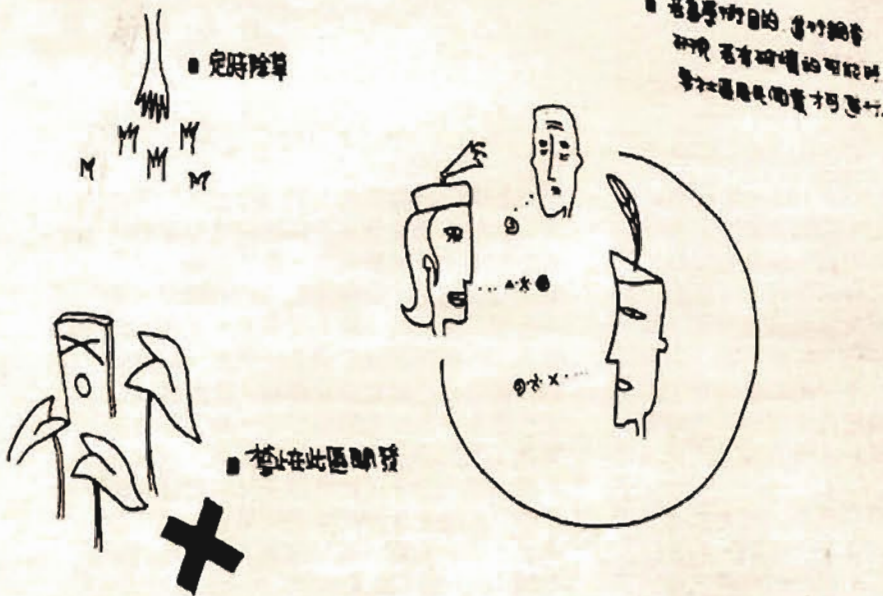 ■ 定時除草
■ 若為學術目的 進行調查
研究 若有破壞的可能時
要社區居民同意才可進行.
■ 禁止在此區開發